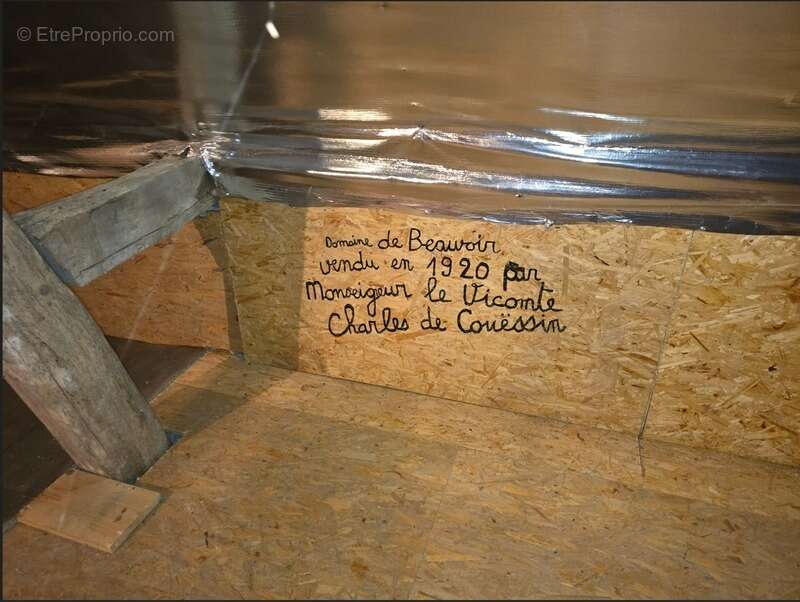 © EtreProprio.com
Domaine de Beauvoir
vendu en 1920 par
Monseigeur le Vicomte
Charles de Couëssin